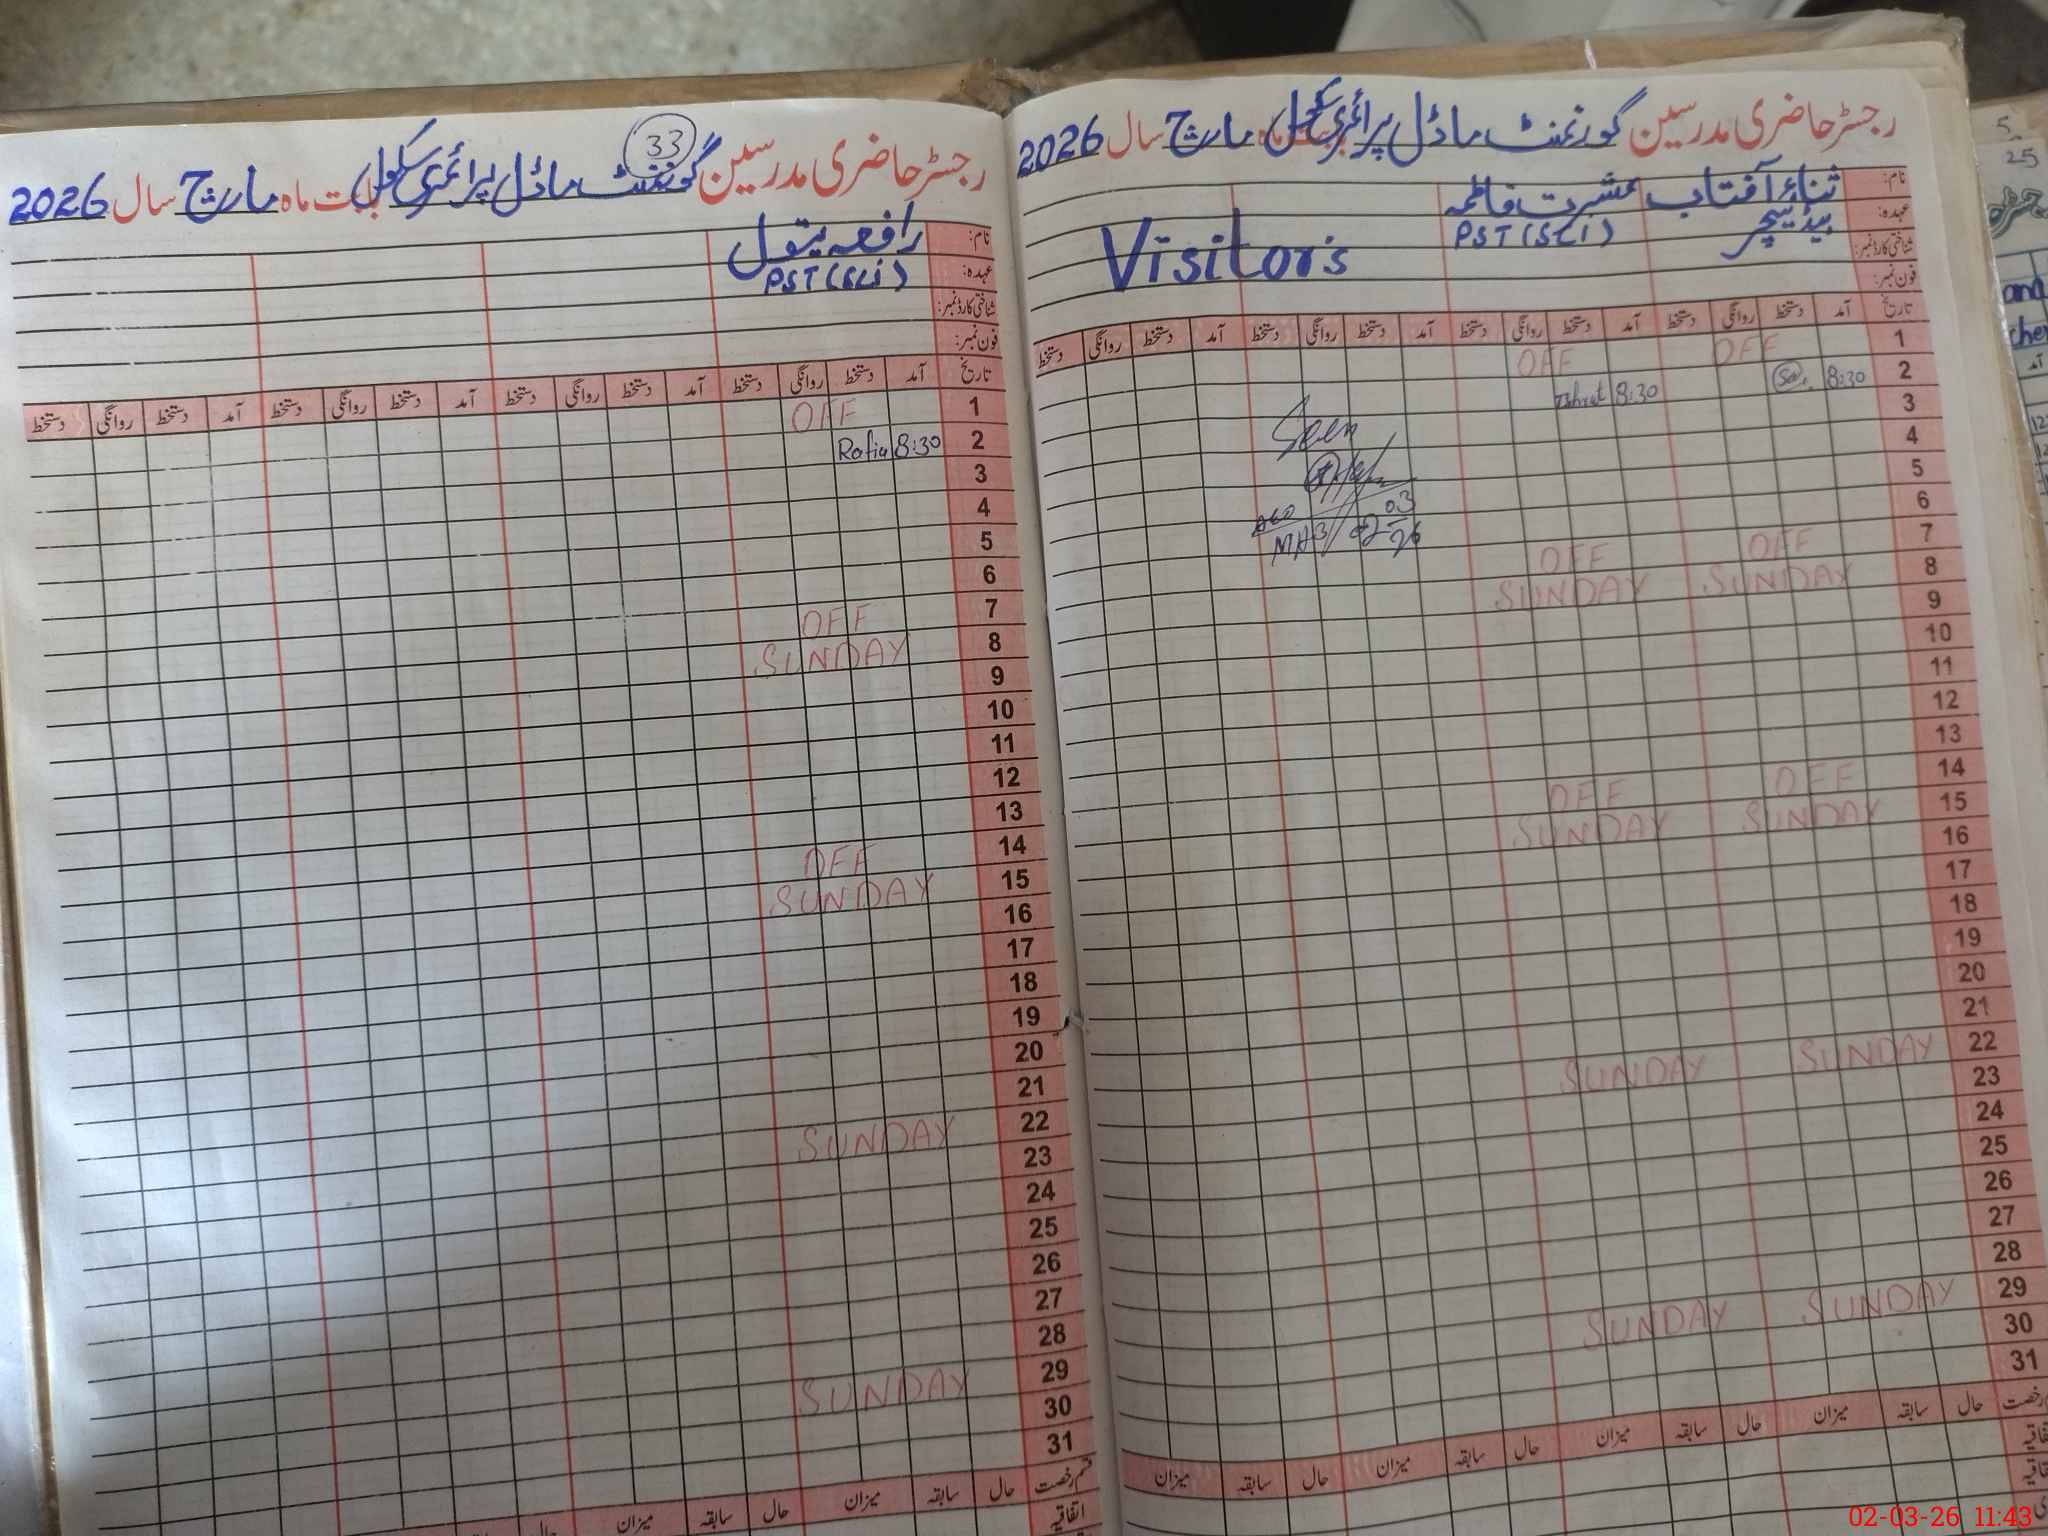 رجسٹر حاضری مدرسین گورنمنٹ ماڈل پرائمری سکول بابت ماہ مارچ سال 2026
نام: ثناء آفتاب عشرت فاطمہ
عہدہ: ہیڈ ٹیچر PST (SLI)
Visitor's
شناختی کارڈ نمبر:
فون نمبر:
تاریخ آمد دستخط روانگی دستخط آمد دستخط روانگی دستخط آمد دستخط روانگی دستخط آمد دستخط روانگی دستخط
1 OFF OFF
2 8:30 8:30 Ishrat
3
4 Seen
5
6 03
7 02 26
8 OFF OFF
SUNDAY SUNDAY
9
10
11
12
13
14 OFF OFF
15 SUNDAY SUNDAY
16
17
18
19
20
21
22 SUNDAY SUNDAY
23
24
25
26
27
28
29 SUNDAY SUNDAY
30
31
حال سابقہ میزان حال سابقہ میزان حال سابقہ میزان حال سابقہ میزان
33
رجسٹر حاضری مدرسین گورنمنٹ ماڈل پرائمری سکول بابت ماہ مارچ سال 2026
نام: رافعہ بتول
عہدہ: PST (SLI)
شناختی کارڈ نمبر:
فون نمبر:
تاریخ آمد دستخط روانگی دستخط آمد دستخط روانگی دستخط آمد دستخط روانگی دستخط آمد دستخط روانگی دستخط
1 OFF
2 8:30 Rafia
3
4
5
6
7 OFF
8 SUNDAY
9
10
11
12
13
14 OFF
15 SUNDAY
16
17
18
19
20
21
22 SUNDAY
23
24
25
26
27
28
29 SUNDAY
30
31
قسم رخصت حال سابقہ میزان حال سابقہ میزان حال
اتفاقیہ
02-03-26 11:43